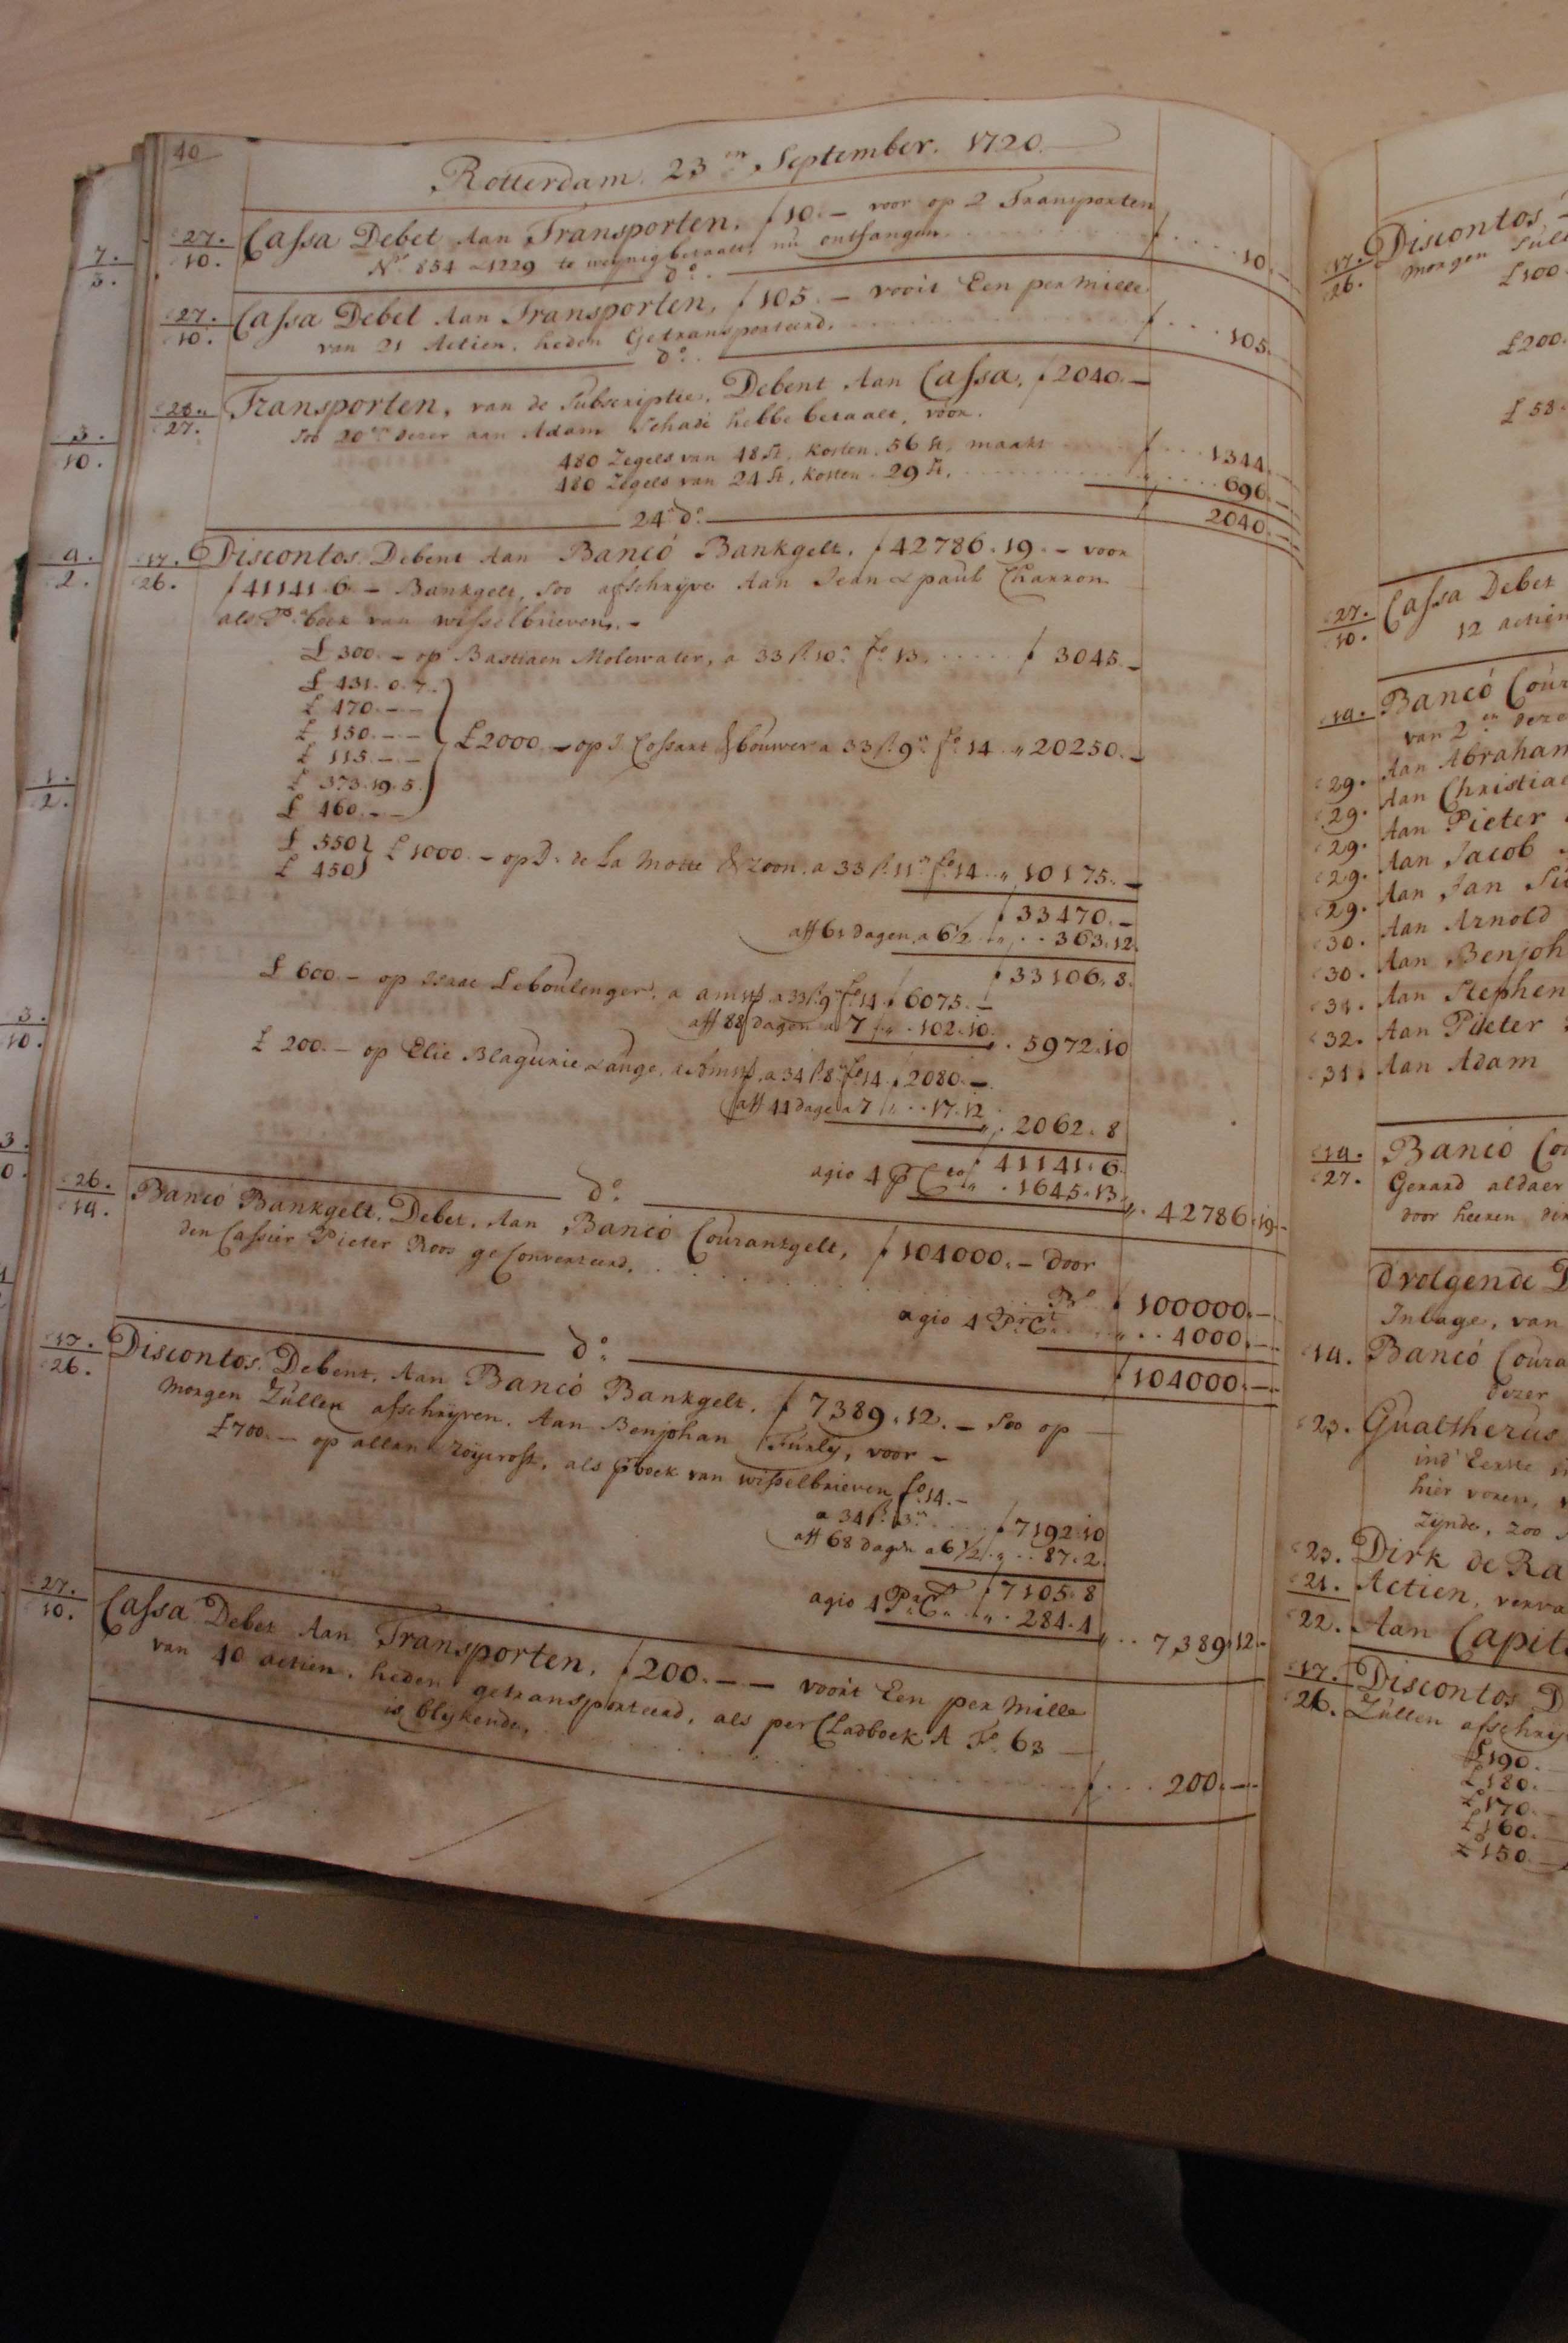 40
Rotterdam. 23en September. 1720.
27. / 10. Cassa Debet Aan Transporten, f 10.– voor op 2 Transporten
No. 854 – 1229 te weynig betaalt, nu ontfangen f 10.–
do.
27. / 10. Cassa Debet Aan Transporten, f 105.– voor't Een per mille
van 21 Actien, heden Getransporteerd, f 105.–
do.
28. / 27. Transporten, van de Subscriptie, Debent Aan Cassa, f 2040.–
Soo 20en dezer aan Adam Schade hebbe betaalt, voor.
480 Zegels van 48 St, Kosten 56 St, maakt f 1344.–
480 Zegels van 24 St, Kosten 29 St, 696.–
f 2040.–
24 do.
17. / 26. Discontos Debent Aan Banco Bankgelt, f 42786.19.– voor
f 41141.6.– Bankgelt, Soo afschryve Aan Jean & paul Charron
als Po. boek van wisselbrieven.–
£ 300.– op Bastiaen Molewater, a 33 ß 10 fo 13. f 3045.–
£ 431.0.7.
£ 170.–.–
£ 150.–.–
£ 115.–.–
£ 373.19.5.
£ 460.–.–
£ 2000.– op J Cossart & bouwer a 33 ß 9 fo 14 „ 20250.–
£ 550
£ 450
£ 1000.– op D. de La Motte & Zoon, a 33 ß 11 fo 14 „ 10175.–
f 33470.–
aff 61 dagen a 6 1/2 „ 363.12.
f 33106.8.
£ 600.– op Isaac Leboulenger, a amst a 33 ß 9 fo 14 f 6075.–
aff 88 dagen a 7 „ 102.10. „ 5972.10
£ 200.– op Elie Blagurie Lange, a Amst, a 34 ß 8 fo 14 f 2080.–
aff 44 dage a 7 „ 17.12 „ 2062.8
f 41141.6.
agio 4 P Cto „ 1645.13. „ 42786.19.–
do.
26. / 14. Banco Bankgelt, Debet, Aan Banco Courantgelt, f 104000.– Door
den Cassier Pieter Roos geConverteerd,
Bo f 100000.–
agio 4 Pr Ct „ 4000.–
f 104000.–
do.
17. / 26. Discontos, Debent, Aan Banco Bankgelt, f 7389.12.– Soo op
morgen Zullen afschryven, Aan Benjohan Furly, voor –
£ 700.– op allan , als P boek van wisselbrieven fo 14.–
a 34 ß 3 f 7192.10
aff 68 dagen a 6 1/2 „ 87.2.
f 7105.8
agio 4 Pr Ct „ 284.4 „ 7389.12.–
27. / 10. Cassa Debet Aan Transporten, f 200.–.– voor't Een per Mille
van 40 actien, heden getransporteerd, als per Cladboek A Fo. 63
is blykende, f 200.–
7. / 5.
3. / 10.
4. / 2.
1. / 2.
3. / 10.
17. / 26. Discontos
morgen
£ 100
£ 200.
£ 58
27. / 10. Cassa Debet
12 actien
14. Banco Cour
van 2en deze
29. Aan Abraham
29. Aan Christia
29. Aan Pieter
29. Aan Jacob
29. Aan Jan
30. Aan Arnold
30. Aan Benjoh
31. Aan Stephen
32. Aan Pieter
31. Aan Adam
14. / 27. Banco Co
Gerard aldaer
door heeren
Dvolgende
Inlage, van
14. Banco Coura
dezer
23. Gualtherus
ind' Eerste
hier voren,
Zynde, zoo
23. Dirk de Ra
21. Actien, verva
22. Aan Capit
17. / 26. Discontos D
Zullen afschry
£ 190.
£ 180.
£ 170.
£ 160.
£ 150.